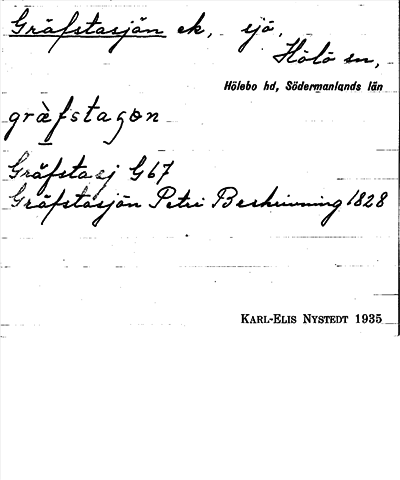 Gräfstasjön ek, sjö,
Hölö sn,
Hölebo hd, Södermanlands län
Gräfsta sj G67
Gräfstasjön Petri Beskrivning 1828
KARL-ELIS NYSTEDT 1935